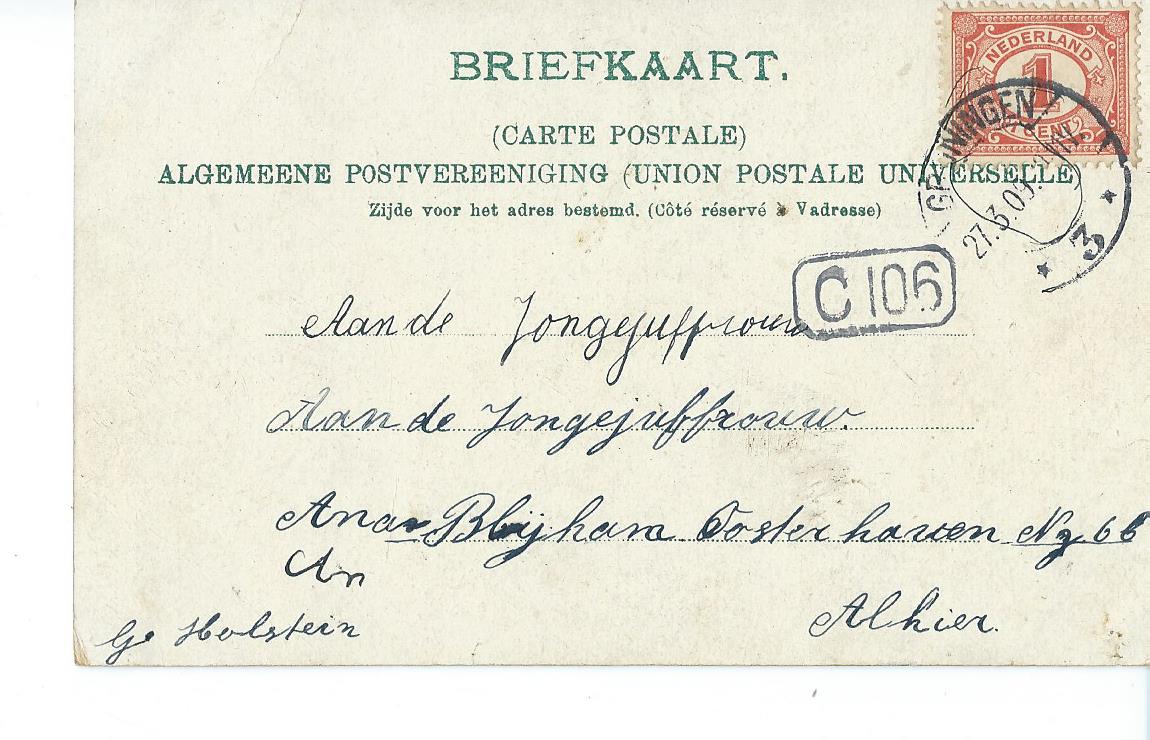 BRIEFKAART.
(CARTE POSTALE)
ALGEMEENE POSTVEREENIGING (UNION POSTALE UNIVERSELLE)
Zijde voor het adres bestemd. (Côté réservé à Vadresse)
NEDERLAND
1
CENT
GRONINGEN
27.3.09
3
C 106
Aan de Jongejuffrouw
Aan de Jongejuffrouw.
Ana Blijham Oosterhaven Nz 6b
An
Alhier.
Ge Holstein